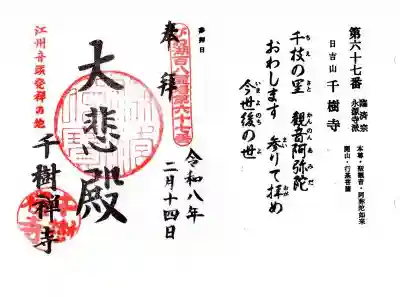 第六十七番
臨済宗
永源寺派
本尊・聖観音・阿弥陀如来
開山・行基菩薩
日吉山 千樹寺
千枝の里 観音阿弥陀
おわします 参りて拝め
今世後の世
奉拝
大悲殿
江州音頭発祥の地
千樹禅寺
令和八年
二月十四日